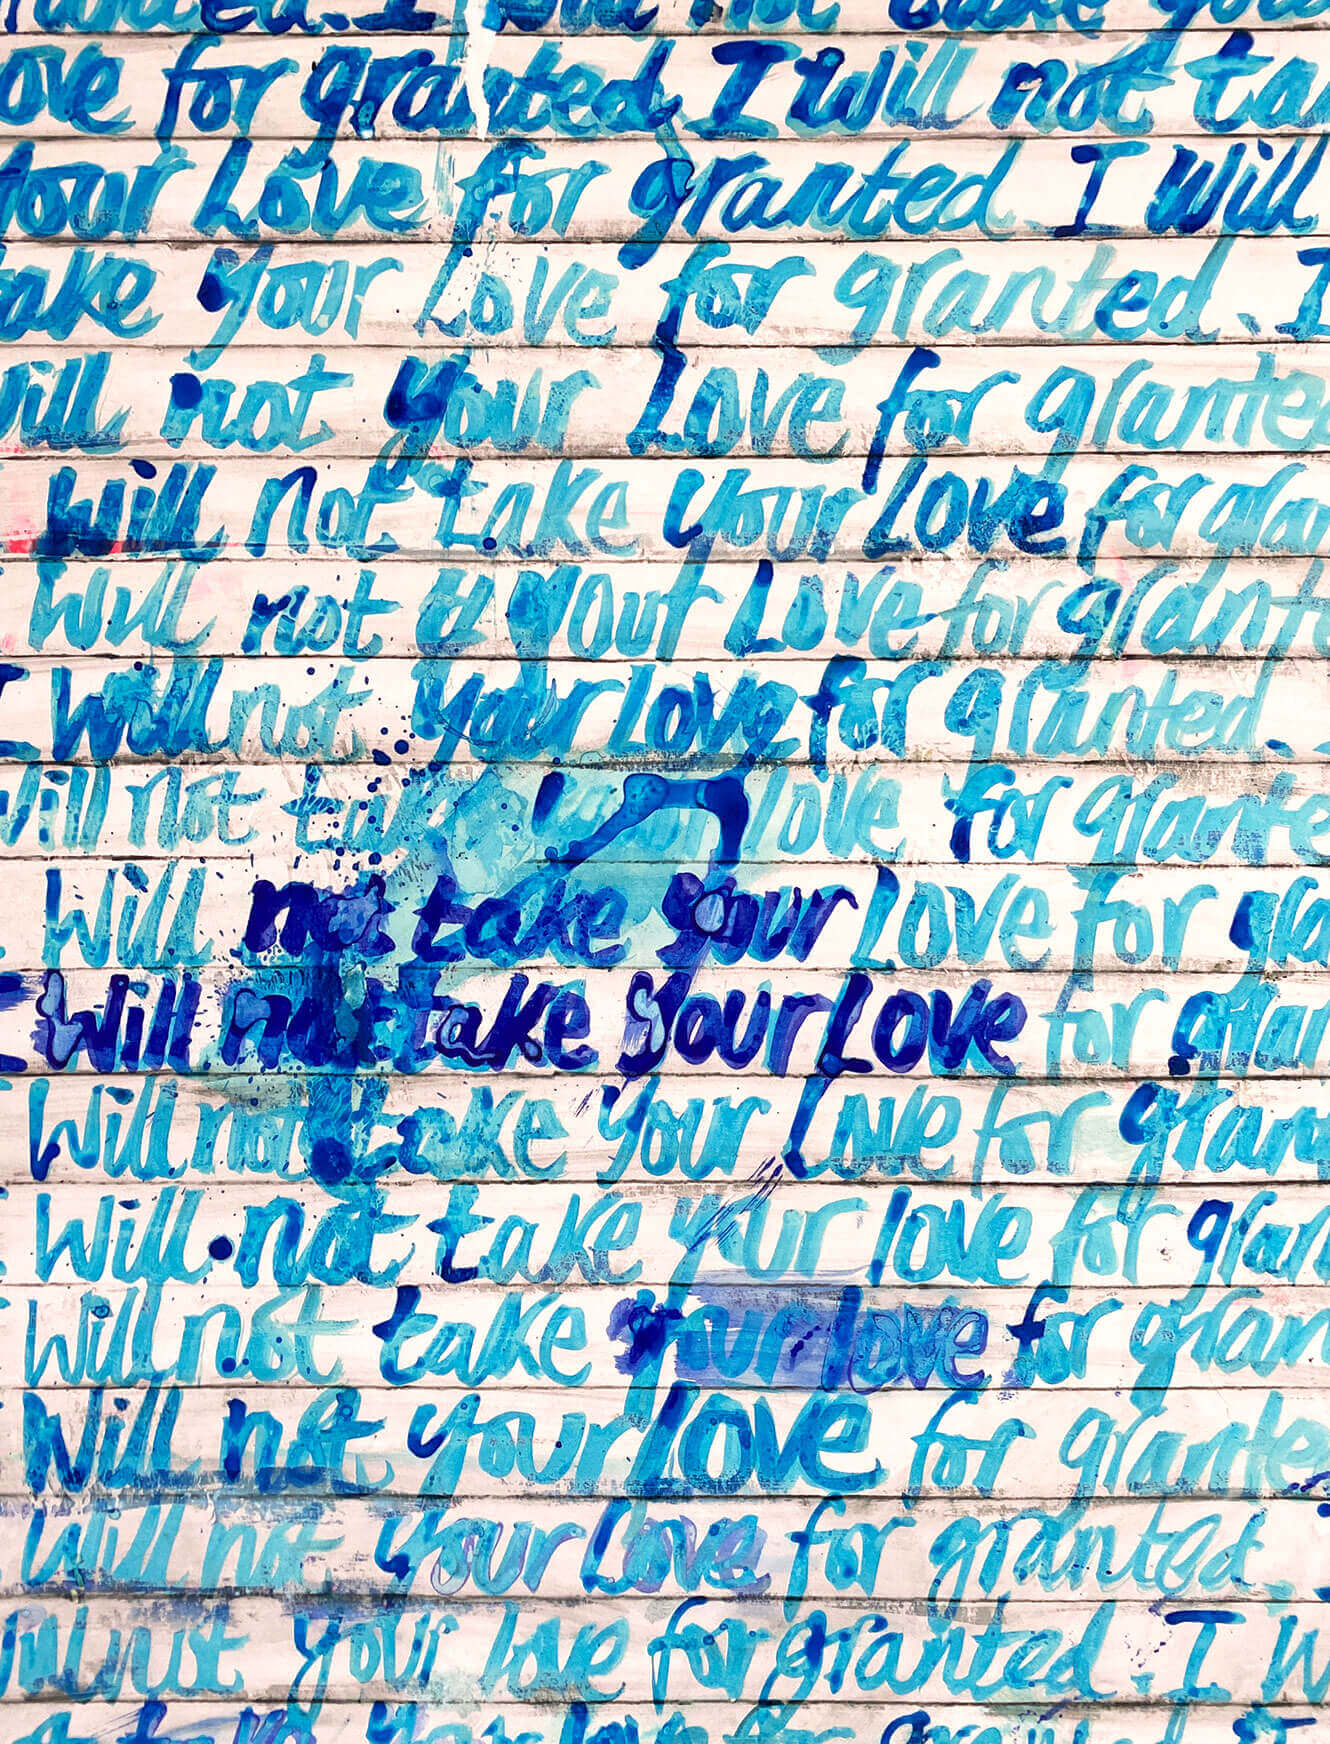 granted. I will not take your
love for granted. I Will not ta
your Love for granted. I Will
take your Love for granted. I
will not your Love for grante
Will not take your Love for gran
Will not your Love for grante
I Will not your love for granted.
Will not take love for grante
Will not take your Love for gra
I Will not take your Love for gran
Will not take your Love for gran
Will not take your love for gran
Will not take your love for gran
Will not your Love for grante
Will not your Love for granted.
will not your love for granted. I W
your love for granted I